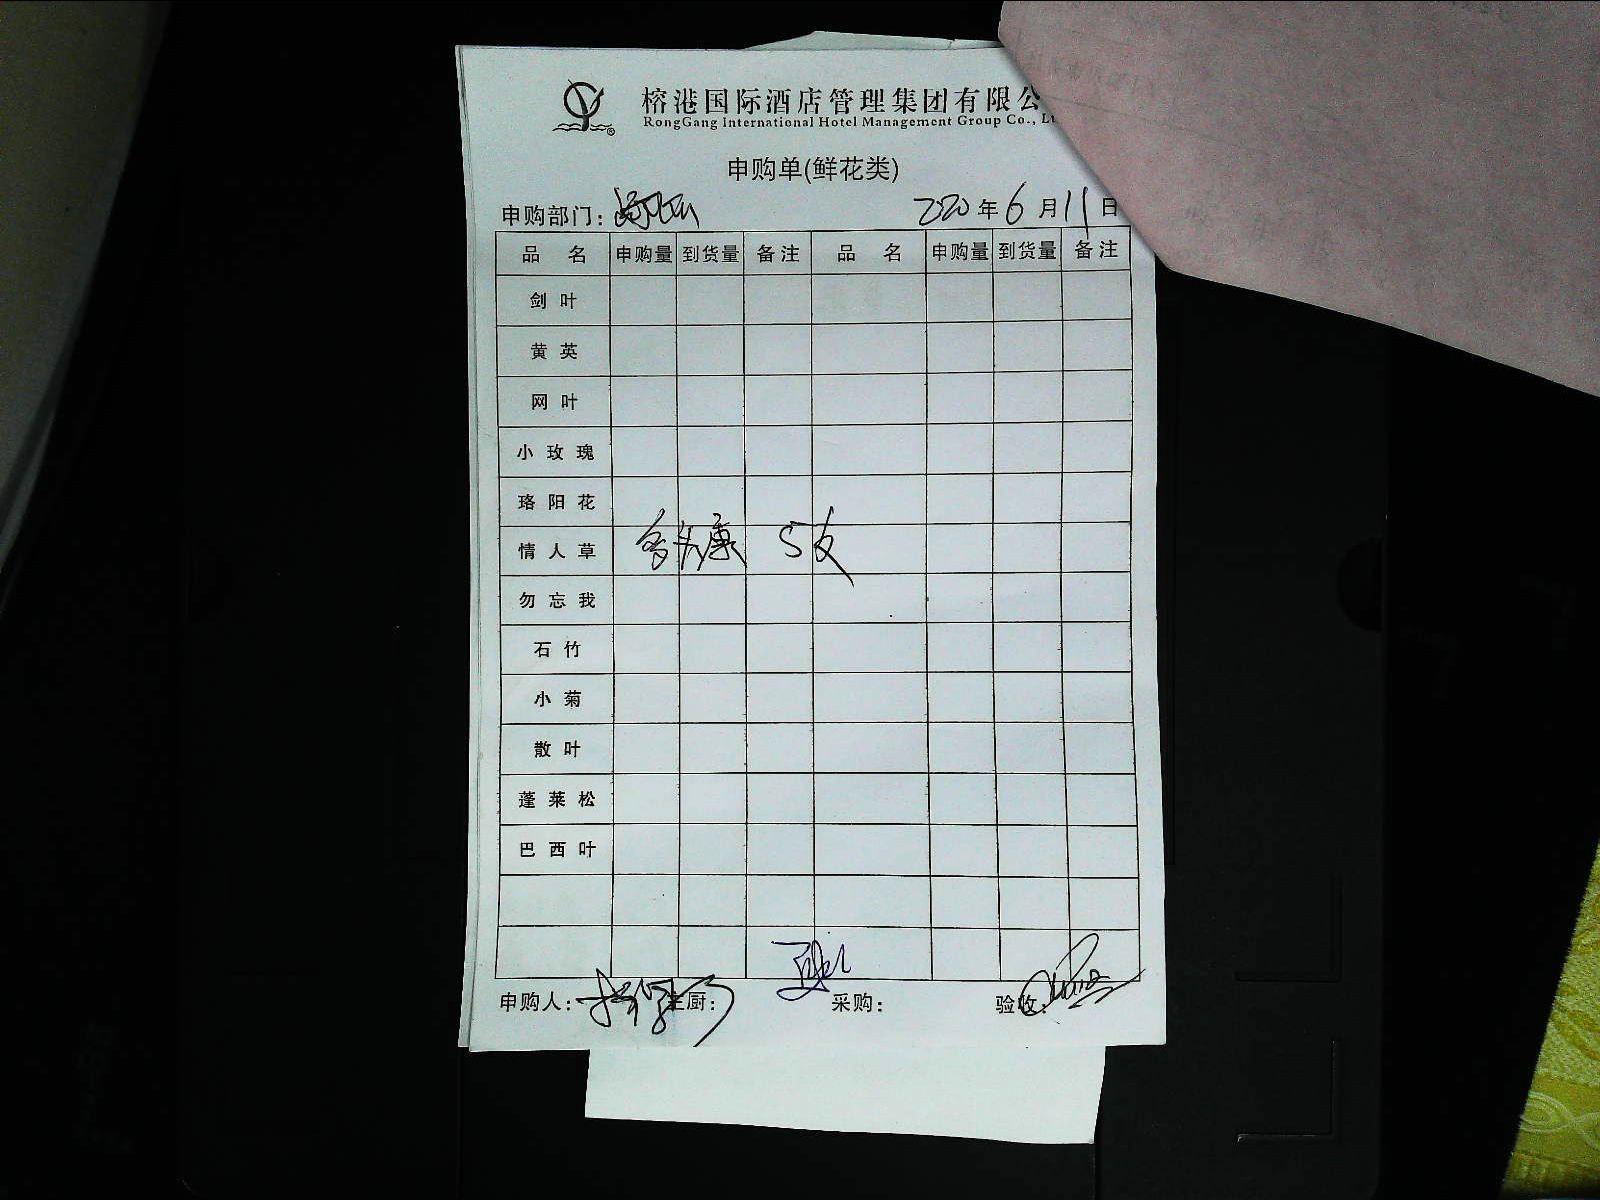 榕港国际酒店管理集团有限公
RongGang International Hotel Management Group Co., Lt
申购单(鲜花类)
申购部门: 2020年6月11日
品名 申购量 到货量 备注 品名 申购量 到货量 备注
剑叶
黄英
网叶
小玫瑰
珞阳花
情人草 5支
勿忘我
石竹
小菊
散叶
蓬莱松
巴西叶
申购人: 主厨: 采购: 验收: